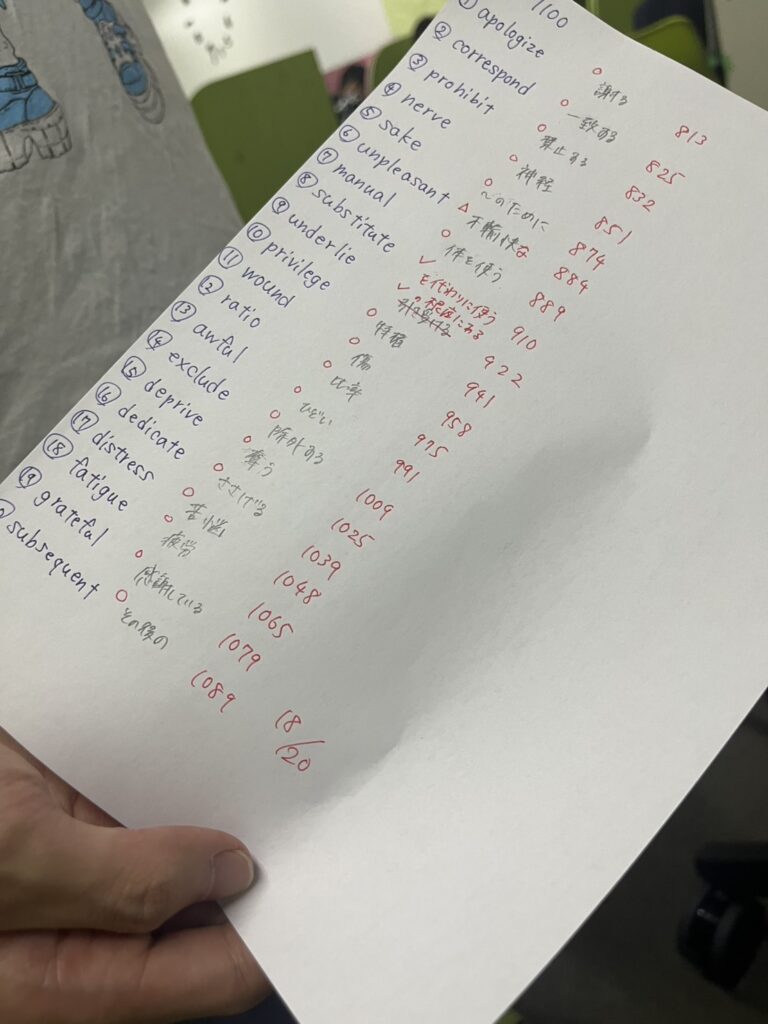 1100
① apologize 謝する 813
② correspond 一致する 825
③ prohibit 禁止する 832
④ nerve 神経 851
⑤ sake ~のために 874
⑥ unpleasant 不愉快な 884
⑦ manual 体を使う 889
⑧ substitute を代わりに使う 910
⑨ underlie の根底にある 922
⑩ privilege 特権 941
⑪ wound 傷 958
⑫ ratio 比率 975
⑬ awful ひどい 991
⑭ exclude 除外する 1009
⑮ deprive 奪う 1025
⑯ dedicate ささげる 1039
⑰ distress 苦悩 1048
⑱ fatigue 疲労 1065
⑲ grateful 感謝している 1079
subsequent その後の 1089
18/20